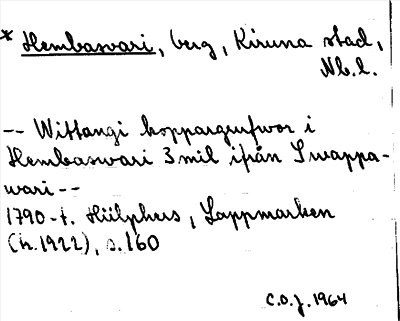 * Hembasvari, berg, Kiruna stad,
Nb.l.
-- Wittangi koppargrufwor i
Hembaswari 3 mil ifrån Swappa-
wari --
1790-t. Hülphers, Lappmarken
(h.1922), s.160
C.O.J. 1964